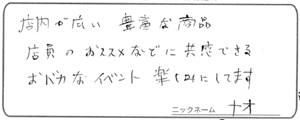 店内が広い 豊富な商品
店員のおススメなどに共感できる
おバカなイベント 楽しみにしてます
ニックネーム ナオ